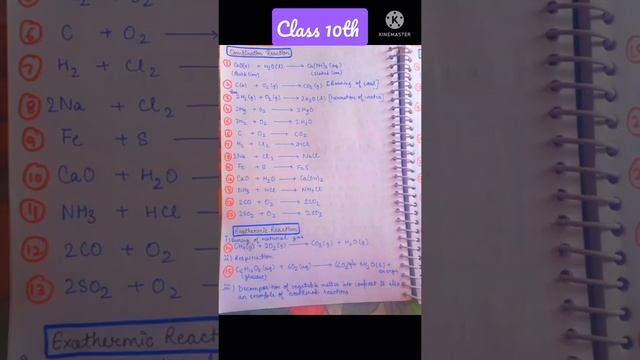 Class 10th
KINEMASTER
Combination Reaction
① CaO(s) + H₂O(l) → Ca(OH)₂(aq)
(Quick lime) (Slaked lime)
② C(s) + O₂(g) → CO₂(g) [Burning of coal]
③ 2H₂(g) + O₂(g) → 2H₂O(l) [Formation of water]
④ 2Mg + O₂ → 2MgO
⑤ 2H₂ + O₂ → 2H₂O
⑥ C + O₂ → CO₂
⑦ H₂ + Cl₂ → 2HCl
⑧ 2Na + Cl₂ → NaCl
⑨ Fe + S → FeS
⑩ CaO + H₂O → Ca(OH)₂
⑪ NH₃ + HCl → NH₄Cl
⑫ 2CO + O₂ → 2CO₂
⑬ 2SO₂ + O₂ → 2SO₃
Exothermic Reaction
i) Burning of natural gas
⑭ CH₄(g) + 2O₂(g) → CO₂(g) + H₂O(g)
ii) Respiration
⑮ C₆H₁₂O₆(aq) + 6O₂(aq) → 6CO₂ + 6H₂O(l) +
(glucose) energy
iii) Decomposition of vegetable matter into compost is also
an example of exothermic reactions.
⑥ C + O₂ →
⑦ H₂ + Cl₂
⑧ 2Na + Cl₂
⑨ Fe + S
⑩ CaO + H₂O
⑪ NH₃ + HCl
⑫ 2CO + O₂
⑬ 2SO₂ + O₂
Exothermic React